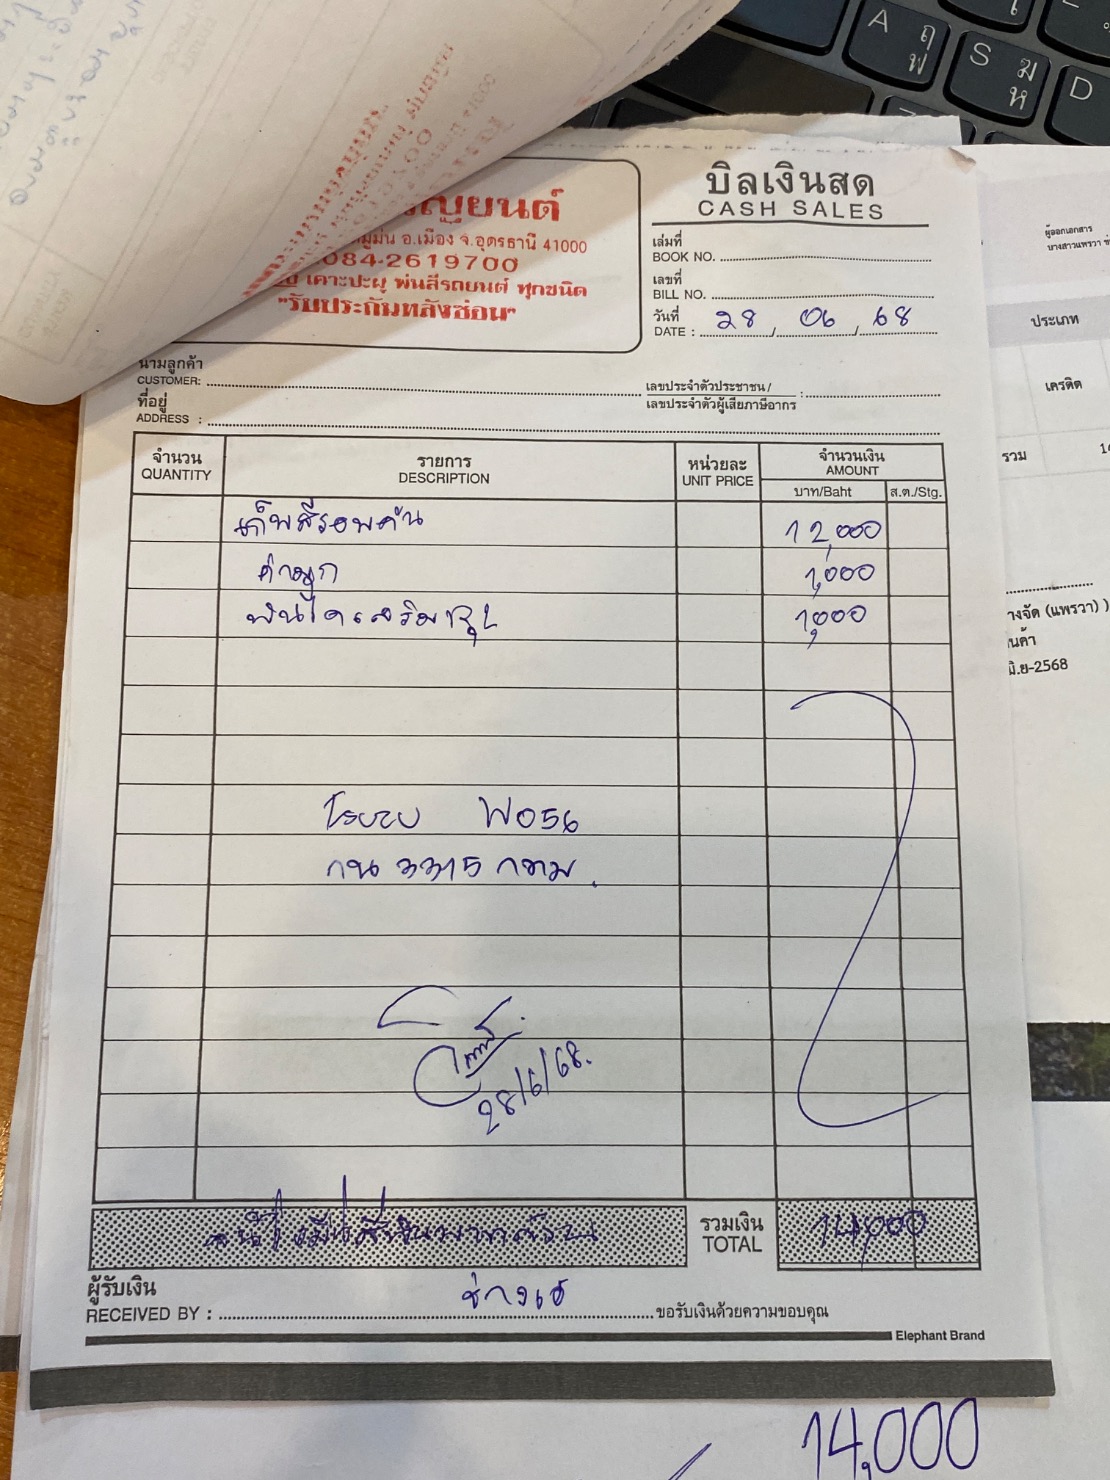 A ฤ ฟ
S ฆ ห
D
ญยนต์
อ.เมือง จ.อุดรธานี 41000
084-2619700
เคาะปะผุ พ่นสีรถยนต์ ทุกชนิด
"รับประกันหลังซ่อม"
บิลเงินสด
CASH SALES
เล่มที่
BOOK NO.
เลขที่
BILL NO.
วันที่
DATE : 28 / 06 / 68
นามลูกค้า
CUSTOMER:
ที่อยู่
ADDRESS :
เลขประจำตัวประชาชน /
เลขประจำตัวผู้เสียภาษีอากร :
จำนวน รายการ หน่วยละ จำนวนเงิน
QUANTITY DESCRIPTION UNIT PRICE AMOUNT
บาท/Baht ส.ต./Stg.
เก็บสีรอบคัน 12,000
ค่ามุก 1,000
1,000
W056
กน 3315 กทม.
28/6/68.
รวมเงิน 14,000
TOTAL
ผู้รับเงิน
RECEIVED BY : ช่างเอ ขอรับเงินด้วยความขอบคุณ
Elephant Brand
14,000
ผู้ออกเอกสาร
บางสาวแพรวา
ประเภท
เครดิต
รวม
างจัด (แพรวา) )
นค้า
มิ.ย-2568